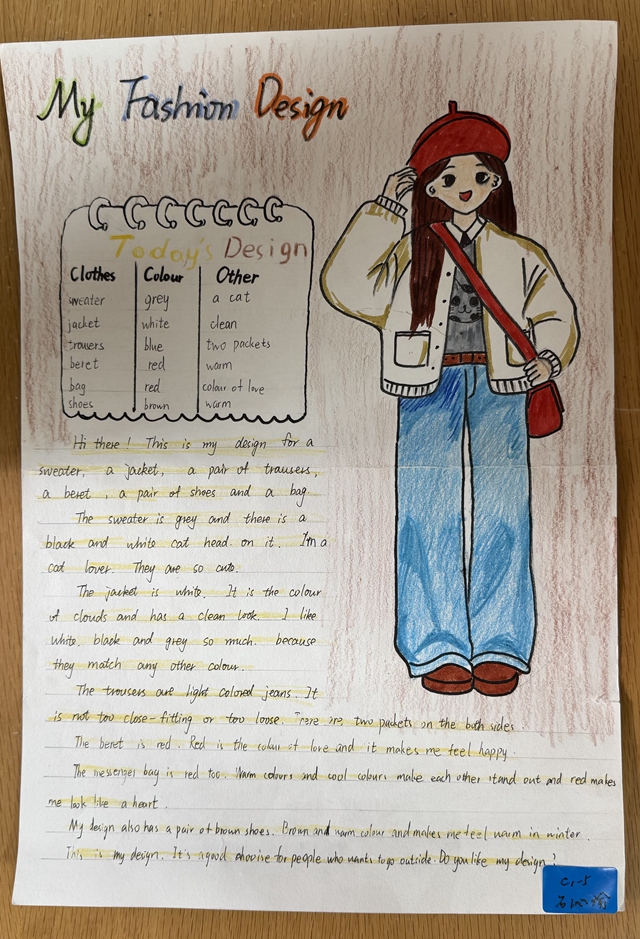 My Fashion Design
Today's Design
Clothes Colour Other
sweater grey a cat
jacket white clean
trousers blue two packets
beret red warm
bag red colour of love
shoes brown warm
Hi there! This is my design for a
sweater, a jacket, a pair of trausers,
a beret, a pair of shoes and a bag.
The sweater is grey and there is a
black and white cat head on it. I'm a
cat lover. They are so cute.
The jacket is white. It is the colour
of clouds and has a clean look. I like
white. black and grey so much. because
they match any other colour.
The trousers are light colored jeans. It
is not too close-fitting or too loose. There are two packets on the both sides
The beret is red. Red is the colour of love and it makes me feel happy.
The messenger bag is red too. Warm colours and cool colours make each other stand out and red makes
me look like a heart.
My design also has a pair of brown shoes. Brown and warm colour and makes me feel warm in winter.
This is my design. It's a good choose for people who wants to go outside. Do you like my design?